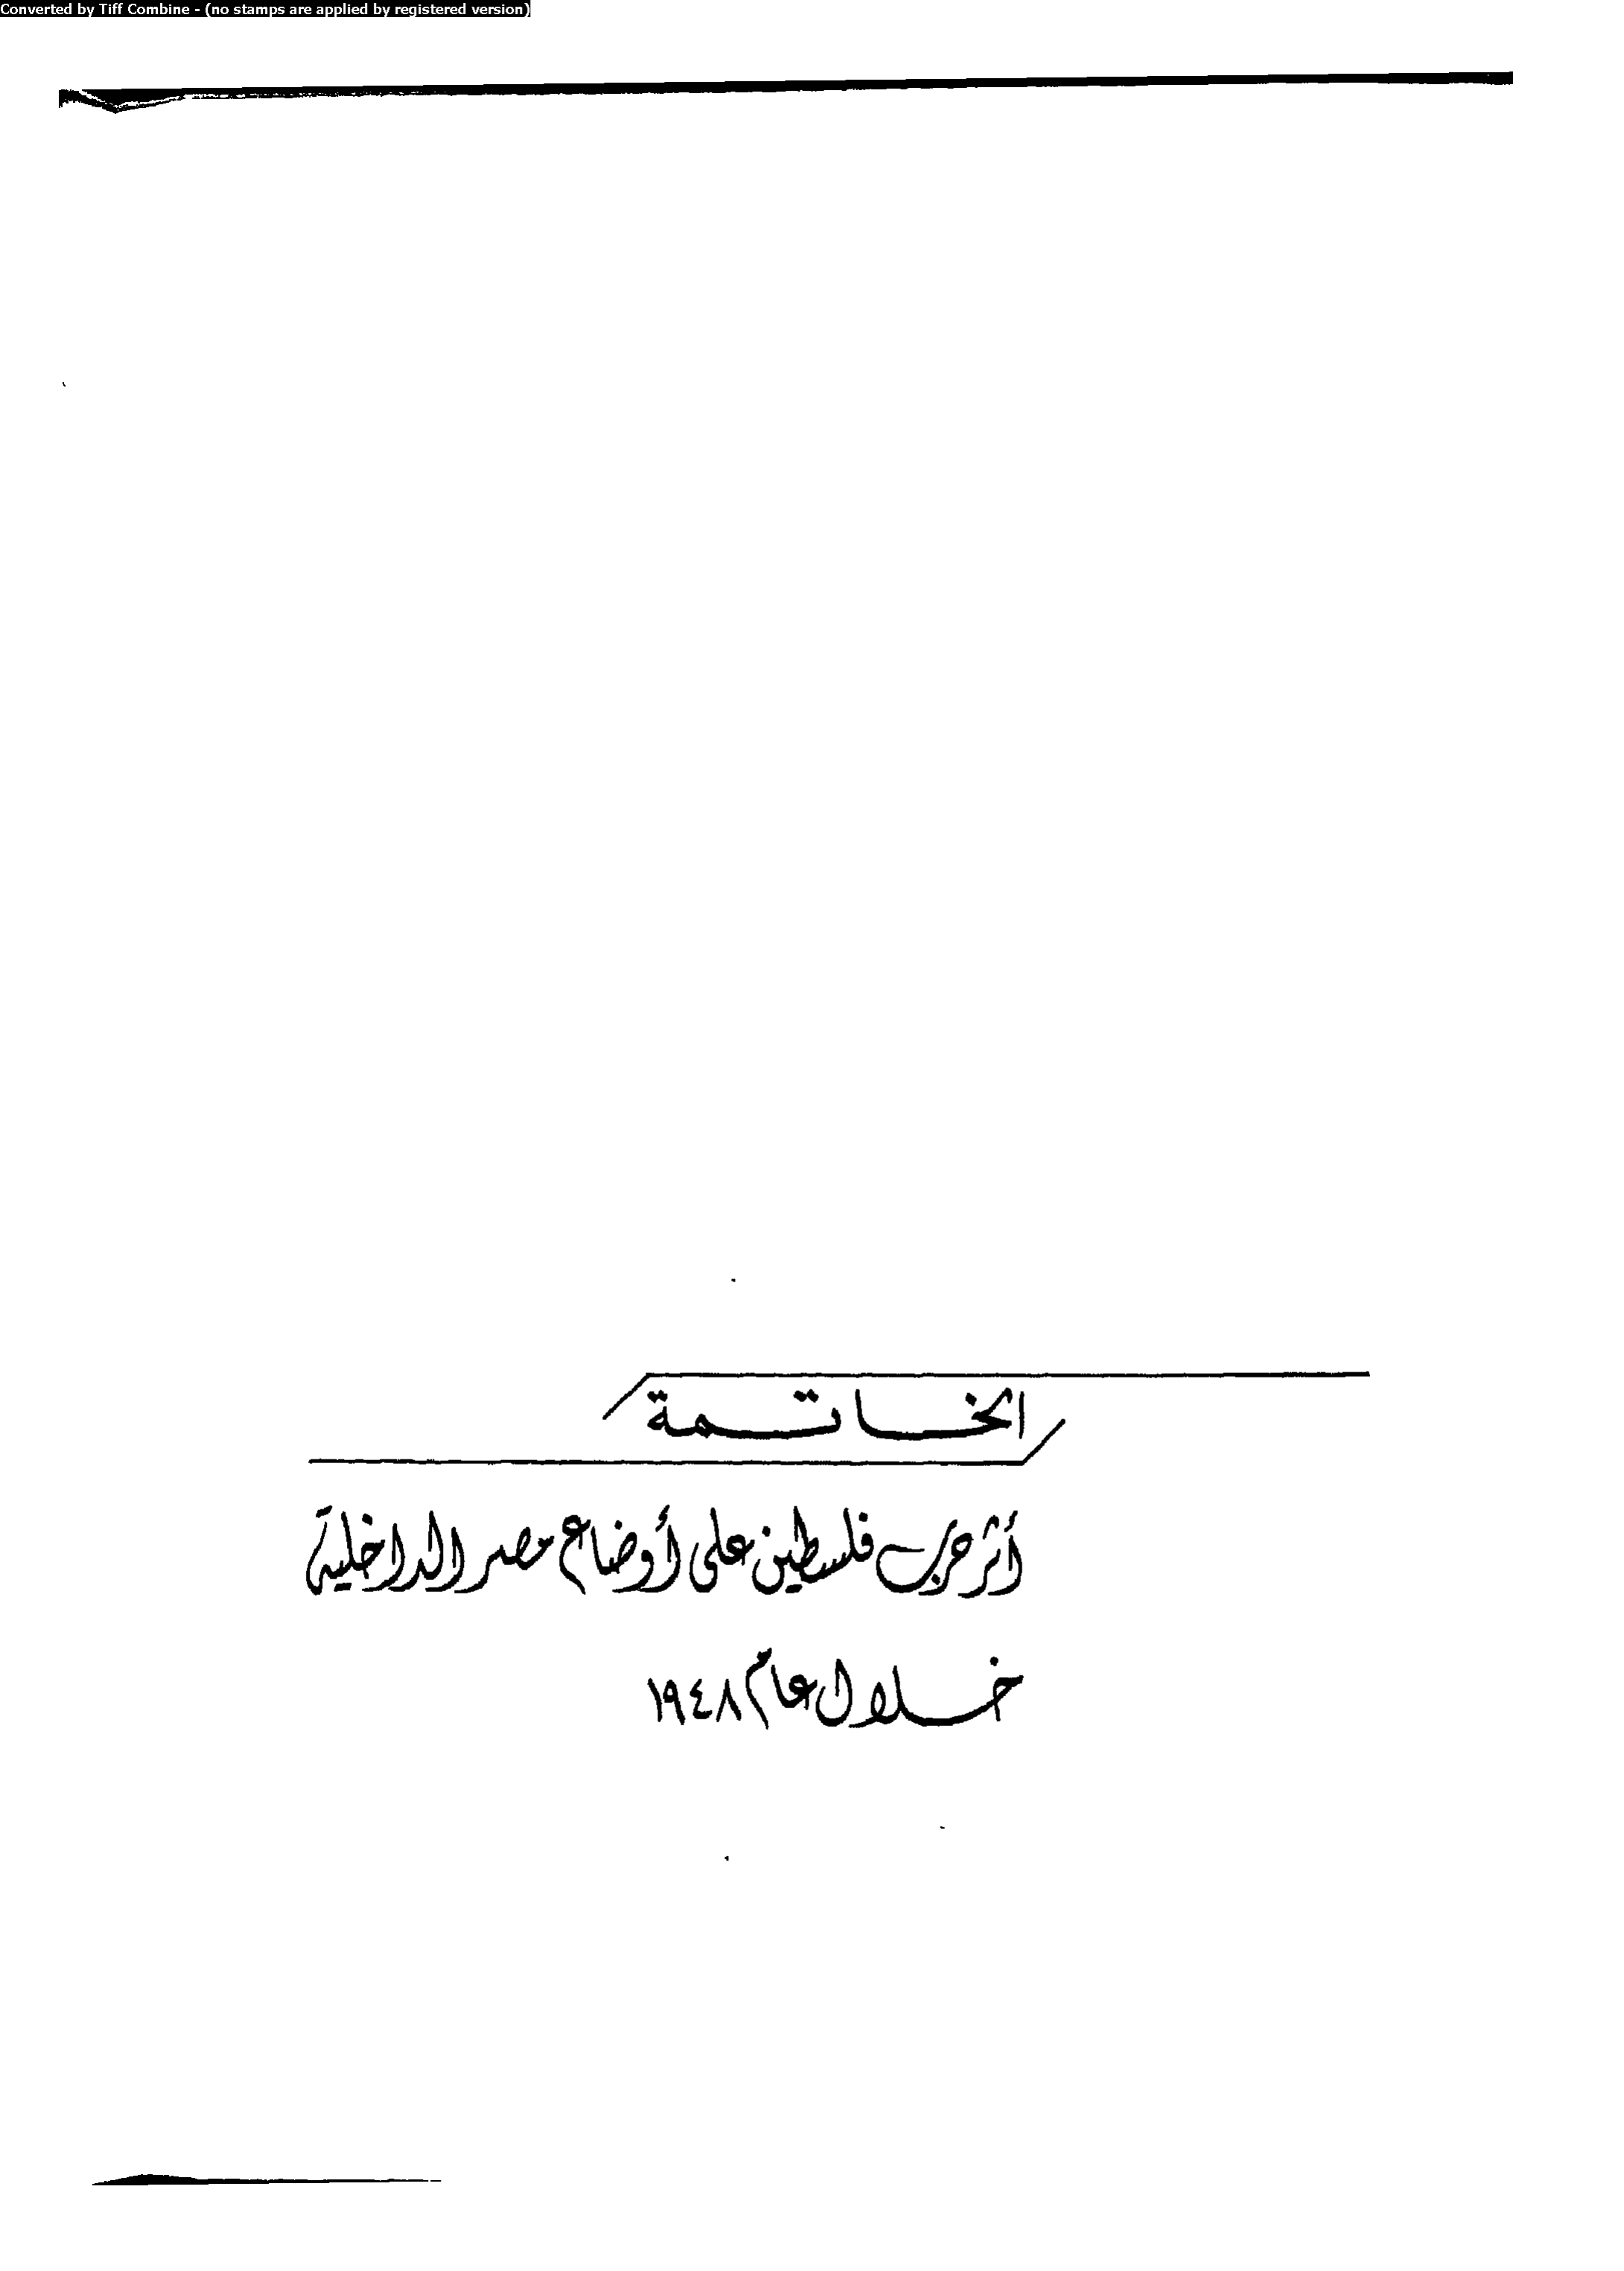 Converted by Tiff Combine - (no stamps are applied by registered version)
الخاتمة
أثر حرب فلسطين على أوضاع مصر الداخلية
خلال عام ١٩٤٨